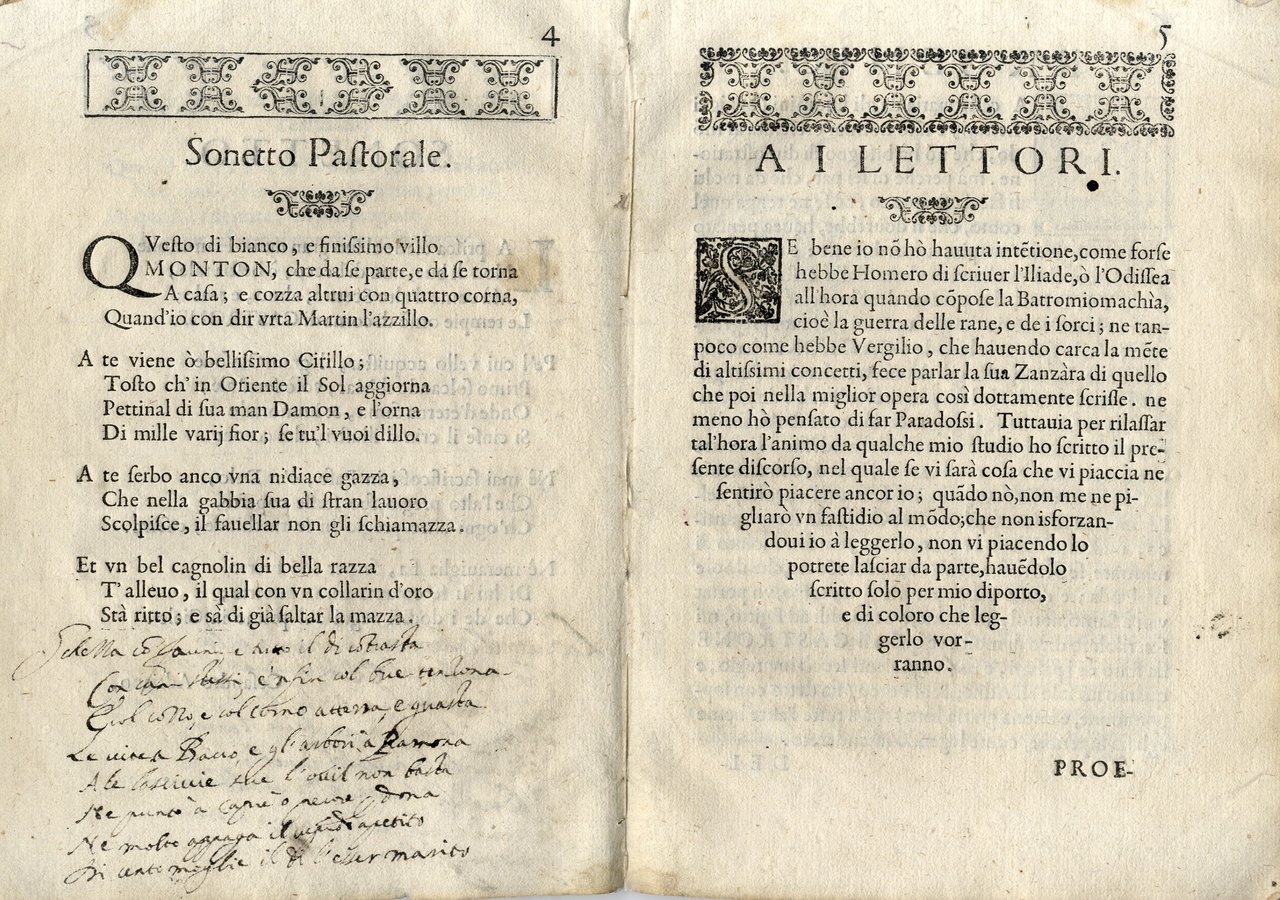 4
Sonetto Pastorale.
QVesto di bianco, e finissimo villo
MONTON, che da se parte, e da se torna
A casa; e cozza altrui con quattro corna,
Quand'io con dir vrta Martin l'azzillo.
A te viene ò bellissimo Cirillo;
Tosto ch'in Oriente il Sol aggiorna
Pettinal di sua man Damon, e l'orna
Di mille varij fior; se tu'l vuoi dillo.
A te serbo anco vna nidiace gazza,
Che nella gabbia sua di stran lauoro
Scolpisce, il fauellar non gli schiamazza.
Et vn bel cagnolin di bella razza
T'alleuo, il qual con vn collarin d'oro
Stà ritto; e sà di già saltar la mazza.
il di contrasta
e nfin col bue
E col collo, e col corno atterra, e guasta
Le vite a Bacco, e gl'arbori a Pamona
A le lascivie sue l'ouil non basta
Ne punto à capre ò pecore
Ne molto appaga il apetito
Di cento moglie il dì l'esser marito
5
AI LETTORI.
SE bene io nõ hò hauuta intẽtione, come forse
hebbe Homero di scriuer l'Iliade, ò l'Odissea
all'hora quàndo cõpose la Batromiomachìa,
cioè la guerra delle rane, e de i sorci; ne tan-
poco come hebbe Vergilio, che hauendo carca la mẽte
di altissimi concetti, fece parlar la sua Zanzàra di quello
che poi nella miglior opera così dottamente scrisse. ne
meno hò pensato di far Paradossi. Tuttauia per rilassar
tal'hora l'animo da qualche mio studio ho scritto il pre-
sente discorso, nel quale se vi sarà cosa che vi piaccia ne
sentirò piacere ancor io; quãdo nò, non me ne pi-
gliarò vn fastidio al mõdo; che non isforzan-
doui io à leggerlo, non vi piacendo lo
potrete lasciar da parte, hauẽdolo
scritto solo per mio diporto,
e di coloro che leg-
gerlo vor-
ranno.
PROE-